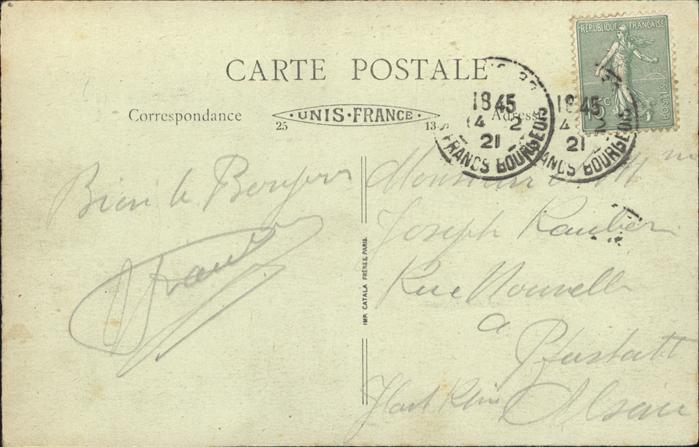 CARTE POSTALE
Correspondance
UNIS-FRANCE
25
13
Adresse
RÉPUBLIQUE FRANÇAISE
15c
18 45
14 - 2
21
FRANCS BOURGEOIS
18 45
4 - 2
21
FRANCS BOURGEOIS
Bien le Bonjour
Monsieur & Mme
Joseph Rauber
Rue Nouvelle
a
Pfastatt
Haut Rhin Alsace
IMP. CATALA FRÈRES, PARIS